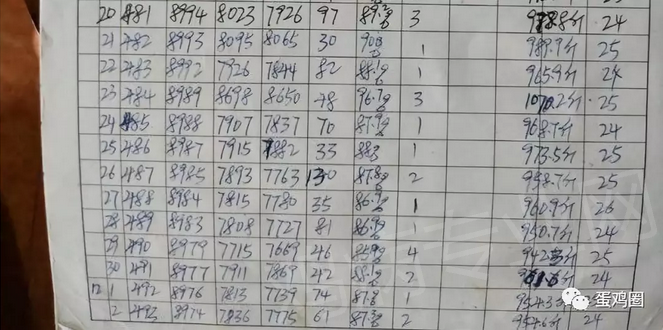 20 881 8994 8023 7926 97 3 24
21 482 8993 8095 8065 30 1 988.9分 25
22 483 8992 7926 7844 82 88.1% 1 965.9分 24
23 484 8989 8698 8650 48 96.7% 3 1070.2分 25
24 485 8988 7907 7837 70 87.9% 1 968.7分 24
25 486 8987 7915 7882 33 88% 1 973.5分 25
26 487 8985 7893 7763 130 87.8% 2 958.7分 25
27 488 8984 7815 7780 35 86.9% 1 960.9分 26
28 489 8983 7808 7727 81 86.9% 1 950.7分 24
29 490 8979 7715 7669 46 4 942.3分 25
30 491 8977 7911 7869 42 88.1% 2 24
12 1 492 8976 7813 7739 74 87% 1
2 493 8974 7836 7775 61 87.3% 2 24
蛋鸡圈